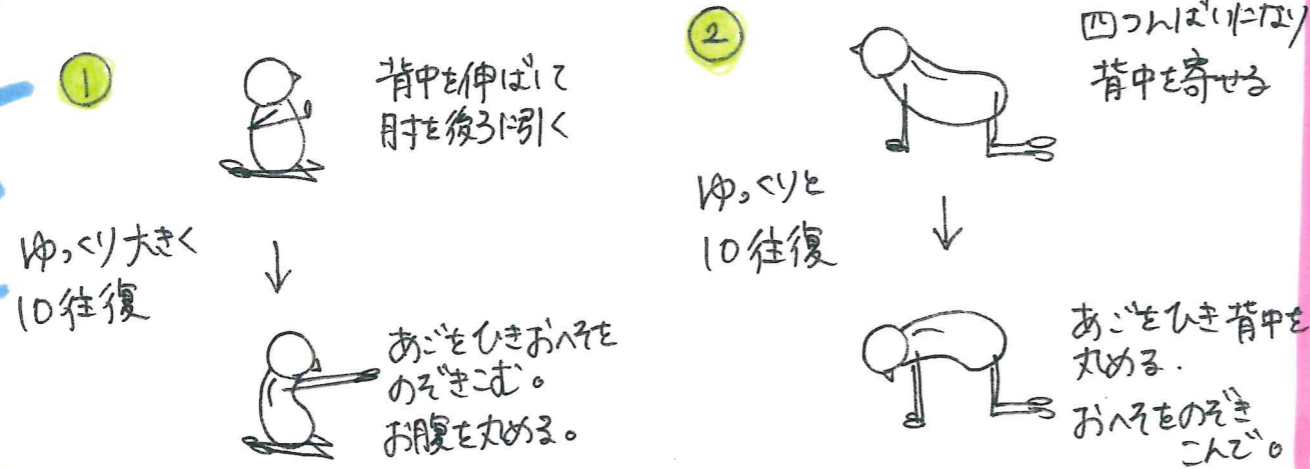 1
背中を伸ばして
肘を後ろに引く
ゆっくり大きく
10往復
あごをひきおへそを
のぞきこむ。
お腹を丸める。
2
四つんばいになり
背中を寄せる
ゆっくりと
10往復
あごをひき背中を
丸める.
おへそをのぞき
こんで。